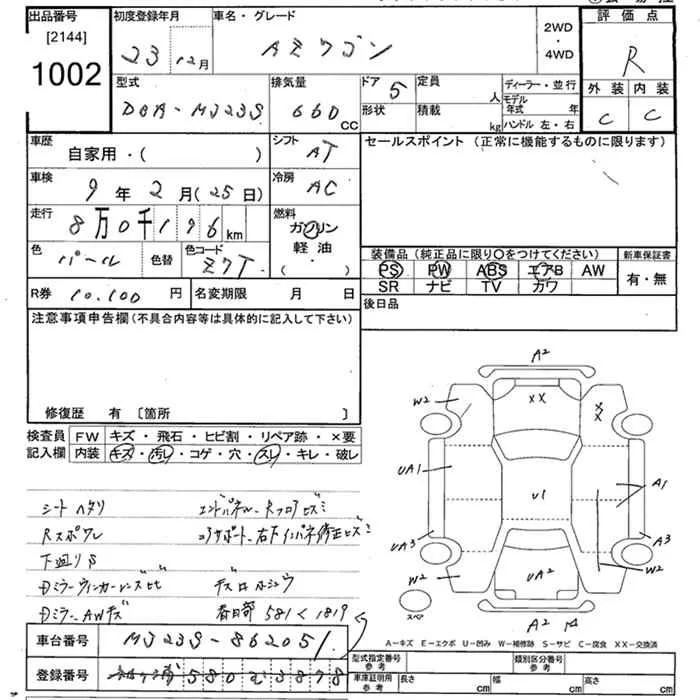 出品番号
[2144]
1002
初度登録年月
23年12月
車名・グレード
AZワゴン
2WD
・
4WD
評価点
R
外装 内装
C C
型式
DBA-MJ23S
排気量
660 CC
ドア 5
形状
定員 人
積載 kg
ディーラー・並行
モデル年式 年
ハンドル 左・右
車歴
自家用・( )
シフト
AT
セールスポイント (正常に機能するものに限ります)
車検
9年2月(25日)
冷房
AC
走行
8万0千196km
燃料
ガソリン
軽油
( ・ )
色
パール
色替
色コード
Z7T
装備品 (純正品に限り〇をつけてください)
新車保証書
PS PW ABS エアB AW
SR ナビ TV カワ
有・無
R券 10,100 円
名変期限 月 日
後日品
注意事項申告欄 (不具合内容等は具体的に記入して下さい)
修復歴 有 [箇所 ]
検査員記入欄
FW キズ・飛石・ヒビ割・リペア跡・×要
内装 キズ・汚レ・コゲ・穴・スレ・キレ・破レ
シートヘタリ
下廻りS
車台番号
MJ23S-862051
登録番号
A2
W2
XX
XX
UA1
U1
A1
UA3
A3
W2
UA2
W2
A2
スペア
A-キズ E-エクボ U-凹み W-補修跡 S-サビ C-腐食 XX-交換済
型式指定番号 参考
類別区分番号 参考
車庫証明用 参考
長さ cm
幅 cm
高さ cm